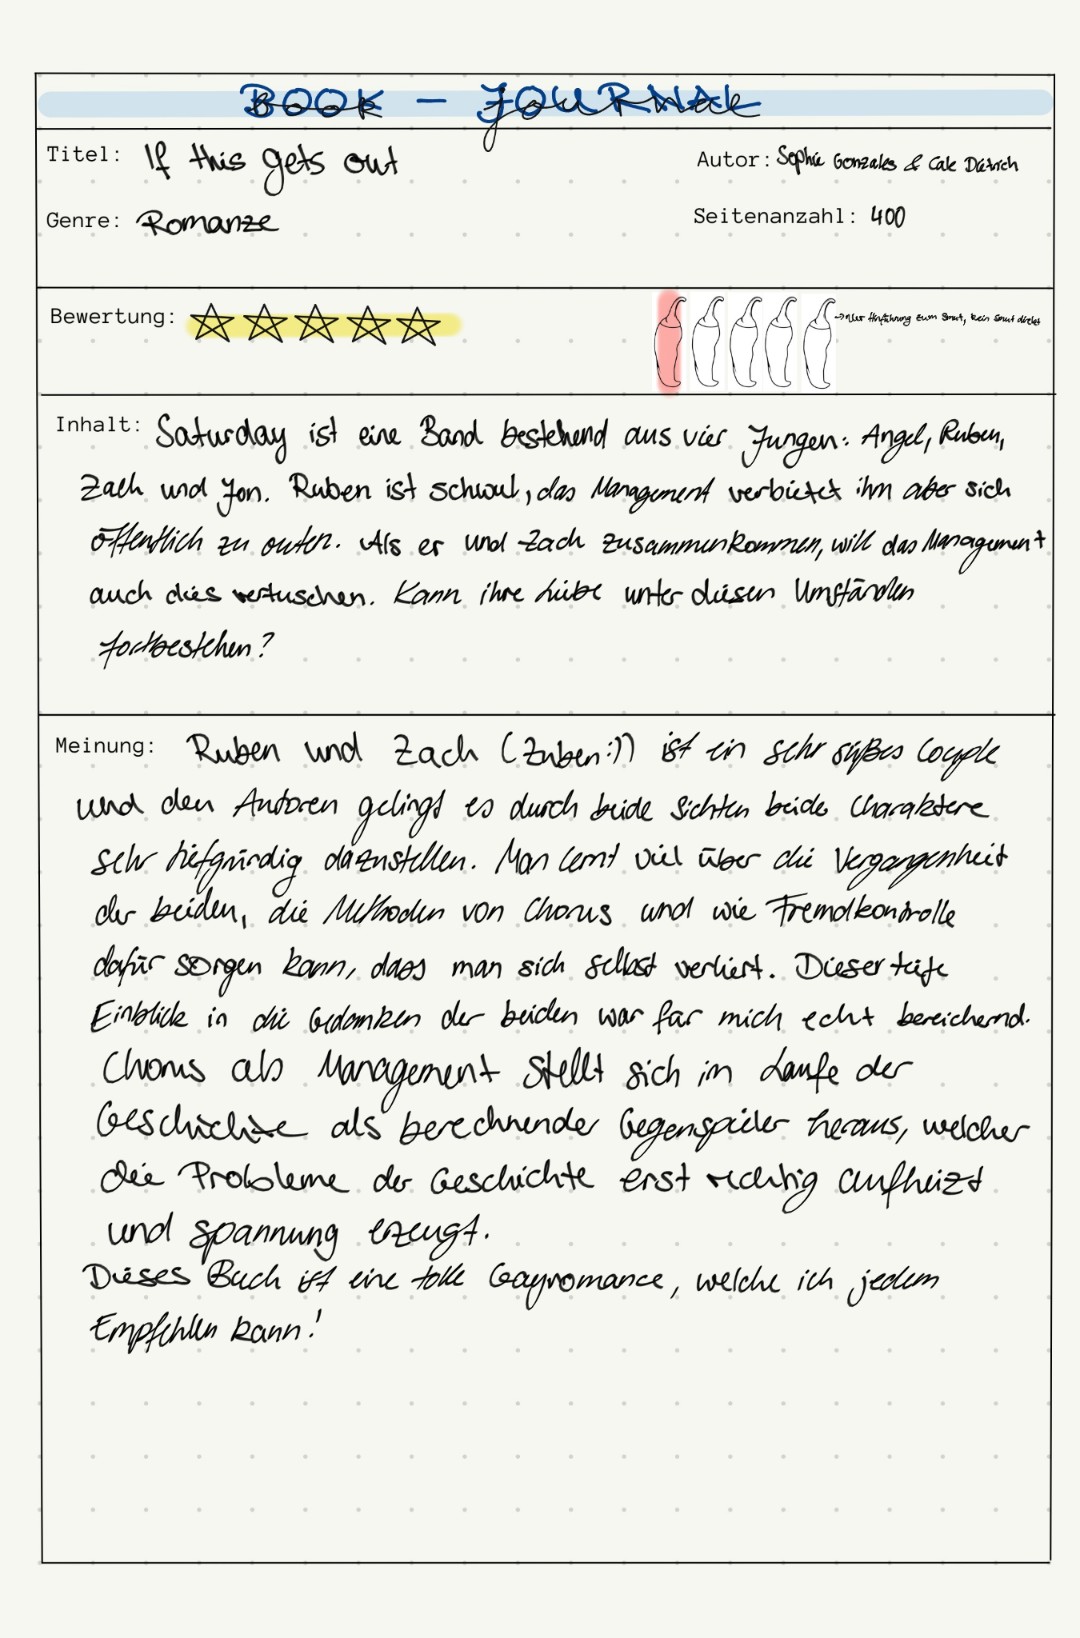 BOOK - JOURNAL
Titel: If this gets out
Autor: Sophie Gonzales & Cale Dietrich
Genre: Romanze
Seitenanzahl: 400
Bewertung:
→ Nur Hinführung zum Smut, kein Smut direkt
Inhalt: Saturday ist eine Band bestehend aus vier Jungen: Angel, Ruben,
Zach und Jon. Ruben ist schwul, das Management verbietet ihm aber sich
öffentlich zu outen. Als er und Zach zusammenkommen, will das Management
auch dies vertuschen. Kann ihre Liebe unter diesen Umständen
fortbestehen?
Meinung: Ruben und Zach (Zuben:)) ist ein sehr süßes Couple
und den Autoren gelingt es durch beide Sichten beide Charaktere
sehr tiefgründig dazustellen. Man lernt viel über die Vergangenheit
der beiden, die Methoden von Chorus und wie Fremdkontrolle
dafür sorgen kann, dass man sich selbst verliert. Dieser tiefe
Einblick in die Gedanken der beiden war für mich echt bereichernd.
Chorus als Management stellt sich im Laufe der
Geschichte als berechnender Gegenspieler heraus, welcher
die Probleme der Geschichte erst richtig aufheizt
und spannung erzeugt.
Dieses Buch ist eine tolle Gayromance, welche ich jedem
Empfehlen kann!